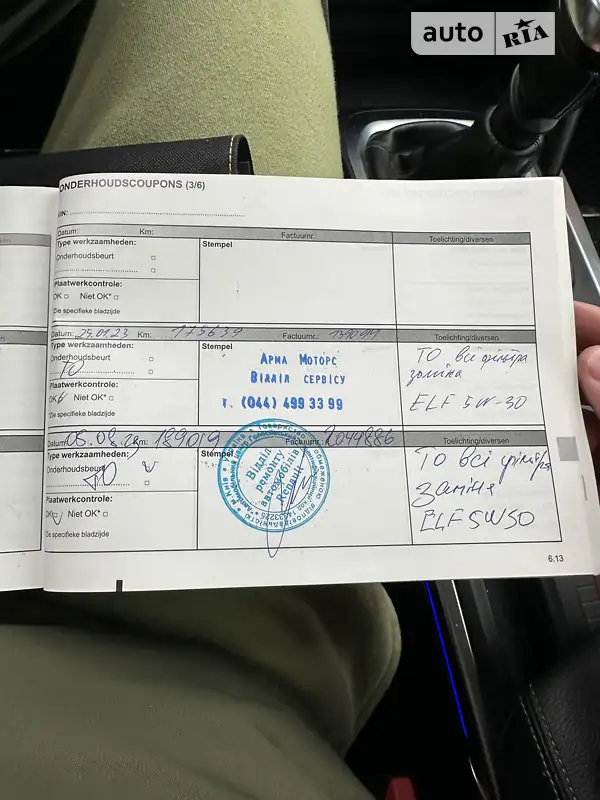 auto RIA
ONDERHOUDSCOUPONS (3/6)
VIN:
Datum: Km: Factuurnr.: Toelichting/diversen
Type werkzaamheden: Stempel
Onderhoudsbeurt
Plaatwerkcontrole:
OK Niet OK*
*Zie specifieke bladzijde
Datum: 25.01.23 Km: 175639 Factuurnr.: Toelichting/diversen
Type werkzaamheden: Stempel
Onderhoudsbeurt
ТО
Plaatwerkcontrole:
OK Niet OK*
*Zie specifieke bladzijde
Арма Моторс
Відділ сервісу
т. (044) 499 33 99
ТО всі фільтра
заміна
ELF 5W-30
Datum: 05.08.23 Km: 189019 Factuurnr.: 2044886 Toelichting/diversen
Type werkzaamheden: Stempel
Onderhoudsbeurt
ТО
Plaatwerkcontrole:
OK Niet OK*
*Zie specifieke bladzijde
Відділ
ремонту
автомобілів
Renault
ТО всі фільтра
заміна
ELF 5W50
6.13